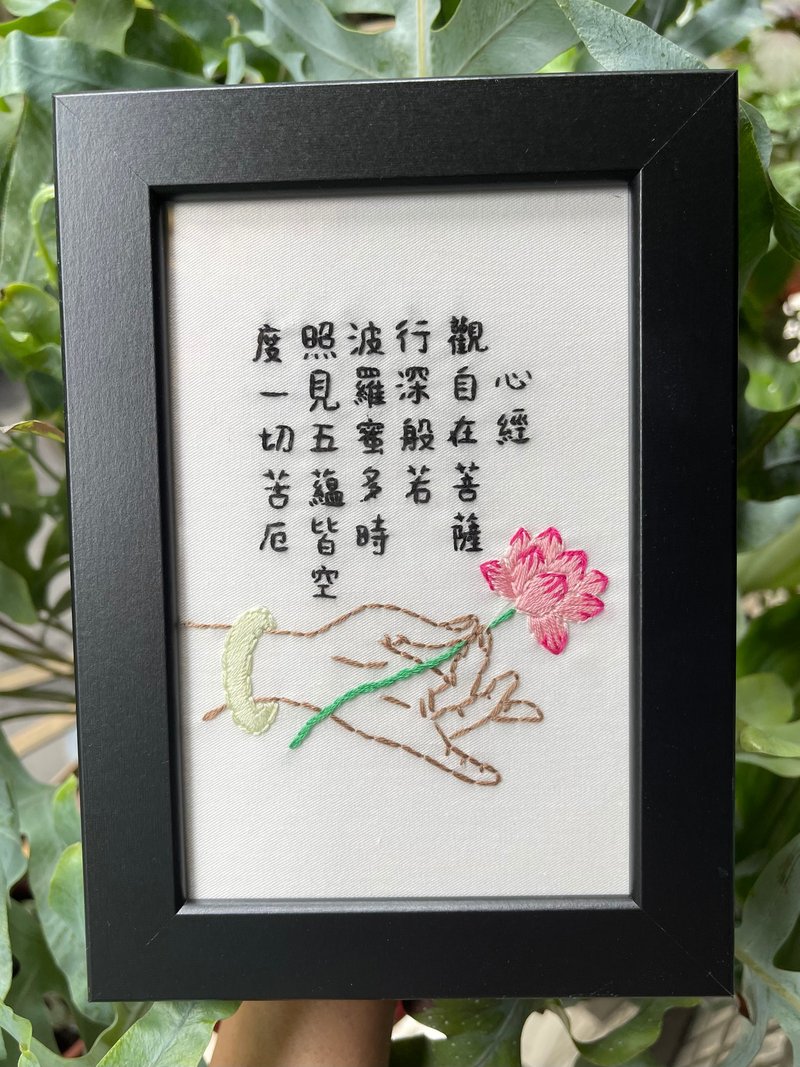 心經
觀自在菩薩
行深般若
波羅蜜多時
照見五蘊皆空
度一切苦厄